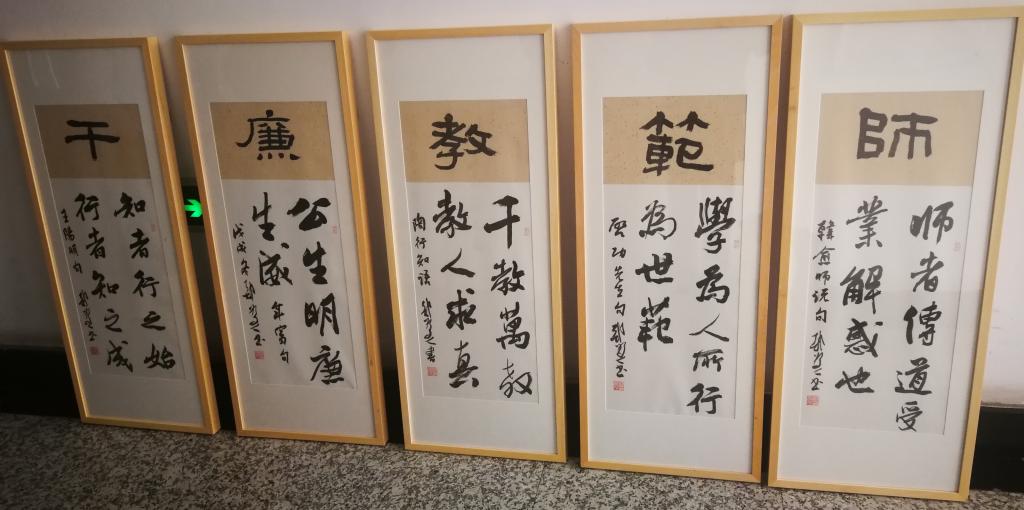 師
师者傳道受
業解惑也
韓愈师说句
範
學为人师行
為世範
啓功先生句
教
千教萬教
教人求真
陶行知語
廉
公生明廉
生威
年富句
戊戌冬
干
知者行之始
行者知之成
王陽明句